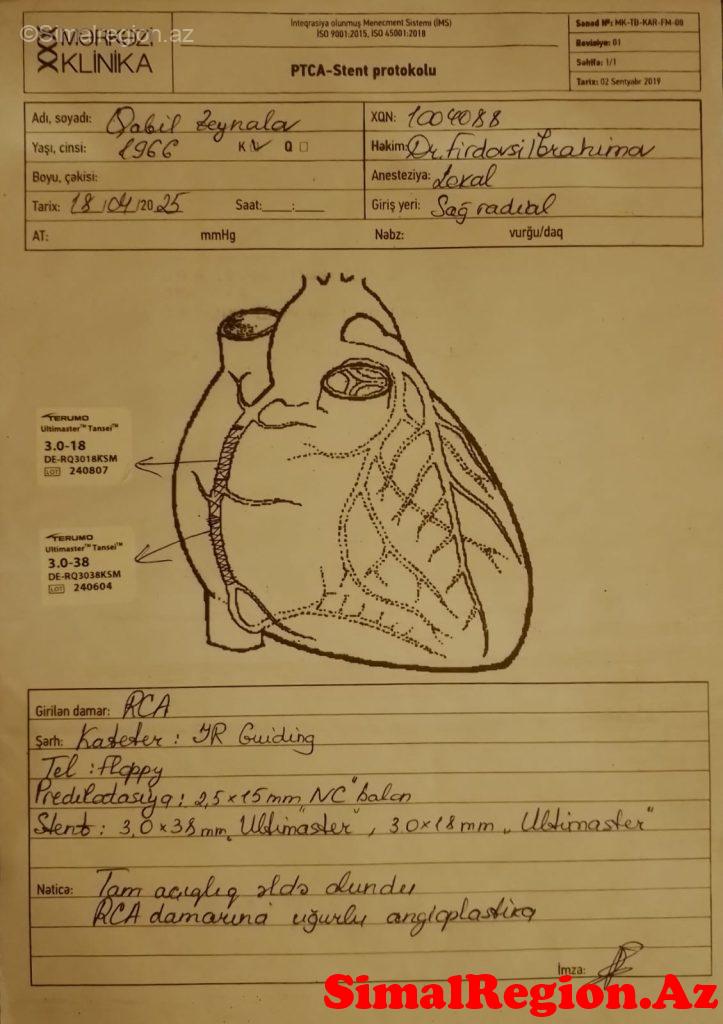 ©Simalregion.az
MƏRKƏZİ
KLİNİKA
İnteqrasiya olunmuş Menecment Sistemi (İMS)
ISO 9001:2015, ISO 45001:2018
PTCA-Stent protokolu
Sənəd №: MK-TB-KAR-FM-08
Reviziya: 01
Səhifə: 1/1
Tarix: 02 Sentyabr 2019
Adı, soyadı: Qabil Zeynalov
XQN: 1004088
Yaşı, cinsi: 1966 K ✓ Q □
Həkim: Dr. Firdovsi İbrahimov
Boyu, çəkisi:
Anesteziya: Lokal
Tarix: 18/04/2025 Saat:___:___
Giriş yeri: Sağ radial
AT: mmHg Nəbz: vurğu/dəq
TERUMO
Ultimaster™ Tansei™
3.0-18
DE-RQ3018KSM
LOT 240807
TERUMO
Ultimaster™ Tansei™
3.0-38
DE-RQ3038KSM
LOT 240604
Girilən damar: RCA
Şərh: Kateter: JR Guiding
Tel: floppy
Predilatasiya: 2,5 x 15 mm „NC" balon
Stent: 3,0 x 38 mm „Ultimaster", 3.0 x 18 mm „Ultimaster"
Nəticə: Tam açıqlıq əldə olundu
RCA damarına uğurlu angioplastika
İmza:
SimalRegion.Az